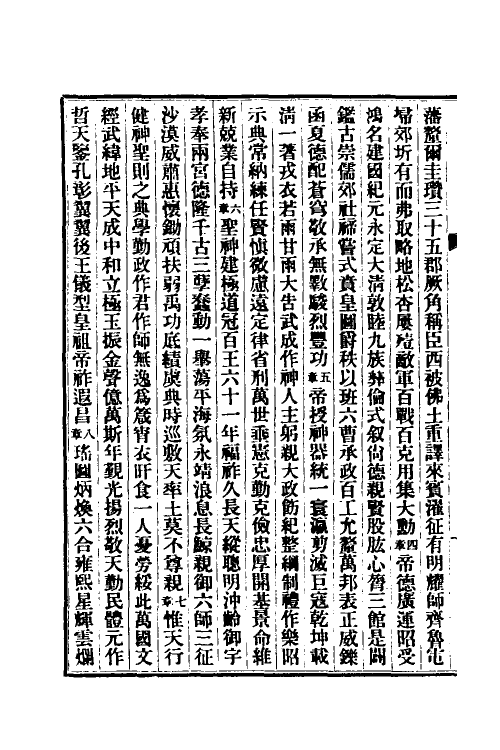 藩釐爾圭瓚三十五郡厥角稱臣西被佛土重譯來賓濯征有明耀師齊魯電
埽郊圻有而弗取略地松杏屢殪敵軍百戰百克用集大勳四章帝德廣運昭受
鴻名建國紀元永定大淸敦睦九族彝倫式叙尙德親賢股肱心膂三館是闢
鑑古崇儒郊社禘嘗式賁皇圖爵秩以班六曹承政百工允釐萬邦表正威鑠
函夏德配蒼穹敬承無斁駿烈豐功五章帝授神器統一寰瀛剪滅巨寇乾坤載
淸一著戎衣若雨甘雨大告武成作神人主躬親大政飭紀整綱制禮作樂昭
示典常納練任賢愼微慮遠定律省刑萬世垂憲克勤克儉忠厚開基景命維
新兢業自持六章聖神建極道冠百王六十一年福祚久長天縱聰明沖齡御宇
孝奉兩宮德隆千古三孽蠢動一舉蕩平海氛永靖浪息長鯨親御六師三征
沙漠威肅惠懷鋤頑扶弱禹功底績虞典時巡敷天率土莫不尊親七章惟天行
健神聖則之典學勤政作君作師無逸爲箴宵衣旰食一人憂勞綏此萬國文
經武緯地平天成中和立極玉振金聲億萬斯年覲光揚烈敬天勤民體元作
哲天鑒孔彰翼翼後王儀型皇祖帝祚遐昌八章瑤圖炳煥六合雍熙星輝雲爛